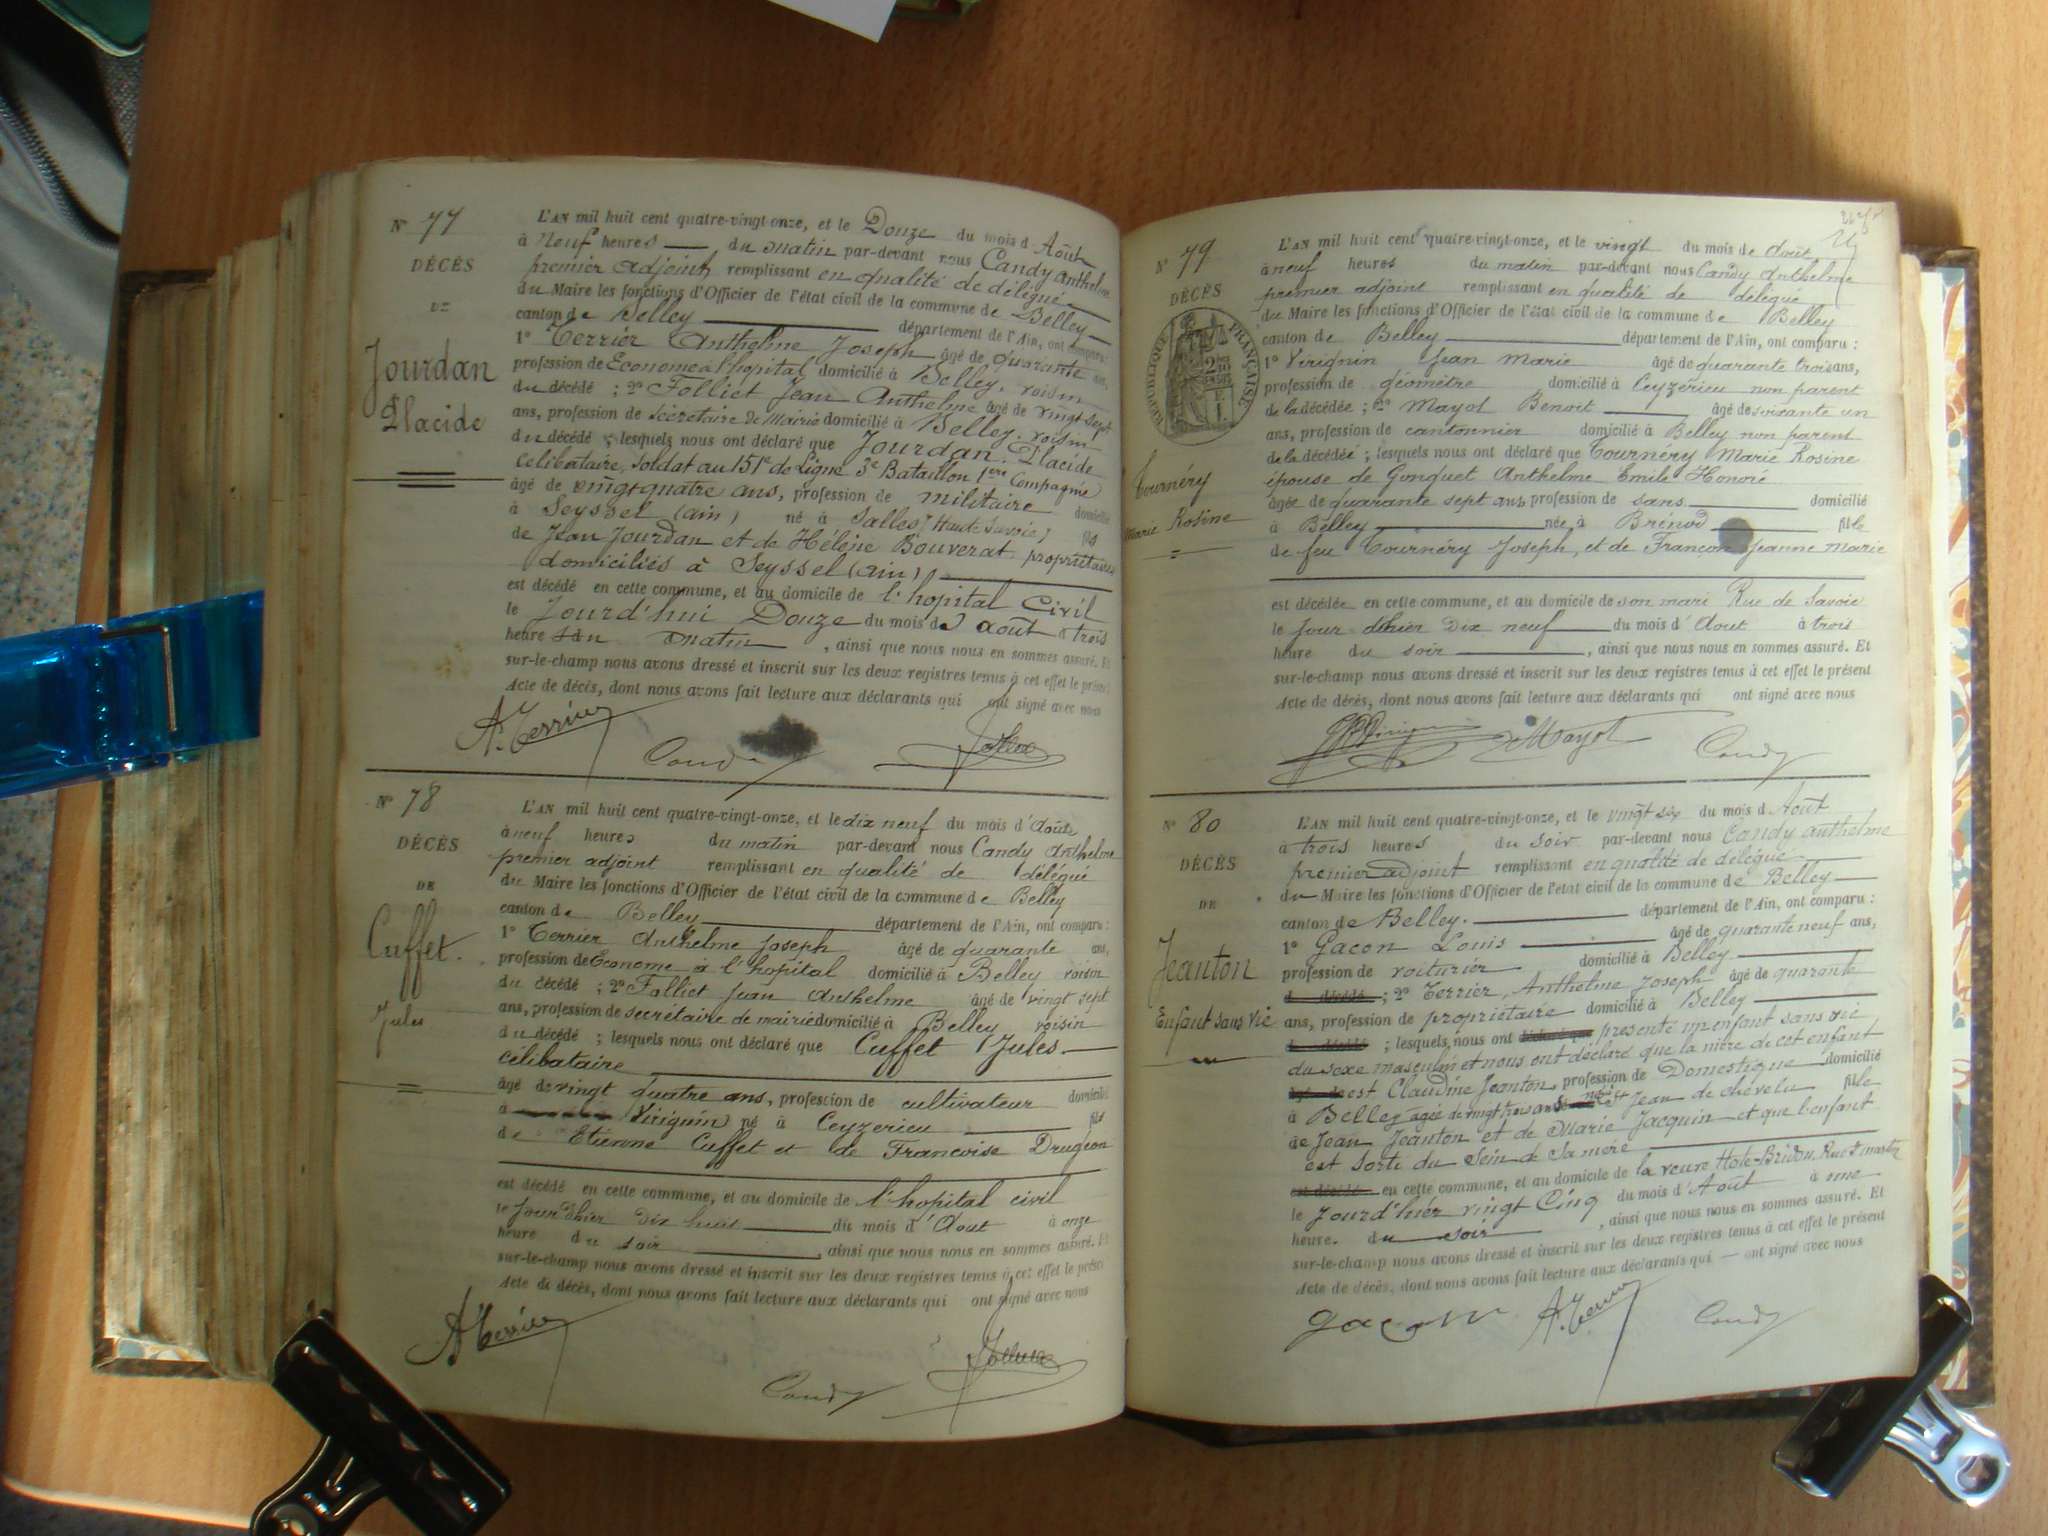 N° 77
DÉCÈS
DE
Jourdan
Placide
L'AN mil huit cent quatre-vingt-onze, et le Douze du mois d'Août
à Neuf heures du matin par-devant nous Candy Anthelme
premier adjoint remplissant en qualité de délégué
du Maire les fonctions d'Officier de l'état civil de la commune de Belley
canton de Belley département de l'Ain, ont comparu :
1° Terrier Anthelme Joseph âgé de quarante ans,
profession de Econome à l'hopital domicilié à Belley, voisin
du décédé ; 2° Folliet Jean Anthelme âgé de vingt sept
ans, profession de secrétaire de Mairie domicilié à Belley, voisin
du décédé ; lesquels nous ont déclaré que Jourdan Placide
Célibataire, soldat au 151e de Ligne 3e Bataillon 1ère Compagnie
âgé de vingt quatre ans, profession de militaire domicilié
à Seyssel (ain) né à Salles (Haute Savoie) fils
de Jean Jourdan et de Hélène Bouverat propriétaires
domiciliés à Seyssel (ain)
est décédé en cette commune, et au domicile de l'hopital Civil
le Jourd'hui Douze du mois d'août à trois
heure du matin, ainsi que nous nous en sommes assuré. Et
sur-le-champ nous avons dressé et inscrit sur les deux registres tenus à cet effet le présent
Acte de décès, dont nous avons fait lecture aux déclarants qui ont signé avec nous
A. Terrier Candy Folliet
N° 78
DÉCÈS
DE
Cuffet.
Jules
L'AN mil huit cent quatre-vingt-onze, et le dix neuf du mois d'Août
à neuf heures du matin par-devant nous Candy Anthelme
premier adjoint remplissant en qualité de délégué
du Maire les fonctions d'Officier de l'état civil de la commune de Belley
canton de Belley département de l'Ain, ont comparu :
1° Terrier Anthelme Joseph âgé de quarante ans,
profession de Econome à l'hopital domicilié à Belley voisin
du décédé ; 2° Folliet Jean Anthelme âgé de vingt sept
ans, profession de secrétaire de mairie domicilié à Belley voisin
du décédé ; lesquels nous ont déclaré que Cuffet Jules
célibataire
âgé de vingt quatre ans, profession de cultivateur domicilié
à Virignin né à Ceyzerieu fils
de Etienne Cuffet et de Francoise Drugeon
est décédé en cette commune, et au domicile de l'hopital civil
le Jour d'hier dix huit du mois d'Aout à onze
heure du soir, ainsi que nous nous en sommes assuré. Et
sur-le-champ nous avons dressé et inscrit sur les deux registres tenus à cet effet le présent
Acte de décès, dont nous avons fait lecture aux déclarants qui ont signé avec nous
A Terrier Candy Folliet
N° 79
DÉCÈS
RÉPUBLIQUE FRANÇAISE
Tournéry
Marie Rosine
L'AN mil huit cent quatre-vingt-onze, et le vingt du mois de Août
à neuf heures du matin par-devant nous Candy Anthelme
premier adjoint remplissant en qualité de délégué
du Maire les fonctions d'Officier de l'état civil de la commune de Belley
canton de Belley département de l'Ain, ont comparu :
1° Virignin Jean Marie âgé de quarante trois ans,
profession de géomètre domicilié à Ceyzérieu non parent
de la décédée ; 2° Mayot Benoit âgé de soixante un
ans, profession de cantonnier domicilié à Belley non parent
de la décédée ; lesquels nous ont déclaré que Tournéry Marie Rosine
épouse de Gonguet Anthelme Emile Honoré
âgée de quarante sept ans profession de sans domicilié
à Belley née à Brénod fille
de feu Tournéry Joseph, et de Françon Jeanne Marie
est décédée en cette commune, et au domicile de son mari Rue de Savoie
le Jour d'hier dix neuf du mois d'Aout à trois
heure du soir, ainsi que nous nous en sommes assuré. Et
sur-le-champ nous avons dressé et inscrit sur les deux registres tenus à cet effet le présent
Acte de décès, dont nous avons fait lecture aux déclarants qui ont signé avec nous
Mayot Candy
N° 80
DÉCÈS
DE
Jeanton
Enfant sans vie
L'AN mil huit cent quatre-vingt-onze, et le vingt six du mois d'Août
à trois heures du soir par-devant nous Candy Anthelme
premier adjoint remplissant en qualité de délégué
du Maire les fonctions d'Officier de l'état civil de la commune de Belley
canton de Belley. département de l'Ain, ont comparu :
1° Gacon Louis âgé de quarante neuf ans,
profession de voiturier domicilié à Belley
du décédé ; 2° Terrier, Anthelme Joseph âgé de quarante
ans, profession de propriétaire domicilié à Belley
du décédé ; lesquels nous ont déclaré que présenté un enfant sans vie
du sexe masculin et nous ont déclaré que la mère de cet enfant
est Claudine Jeanton, profession de Domestique domicilié
à Belley agée de vingt trois ans née à St Jean de chévelu fille
de Jean Jeanton et de Marie Jacquin et que l'enfant
est sorti du Sein de Sa mère
est décédé en cette commune, et au domicile de la veuve Hote-Bridon, Rue St martin
le Jourd'hier vingt Cinq du mois d'Août à une
heure. du soir, ainsi que nous nous en sommes assuré. Et
sur-le-champ nous avons dressé et inscrit sur les deux registres tenus à cet effet le présent
Acte de décès, dont nous avons fait lecture aux déclarants qui ont signé avec nous
Gacon A. Terrier Candy